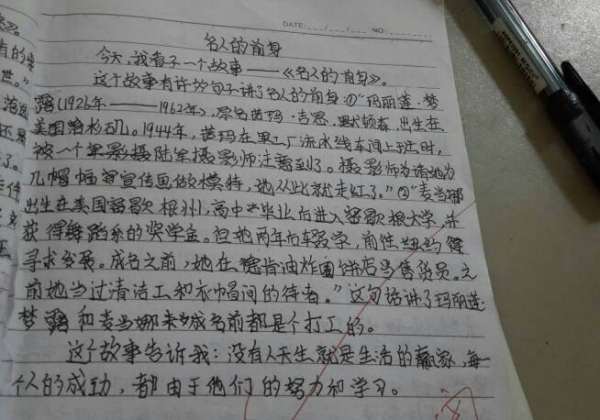 DATE: NO
名人的前身
今天,我看了一个故事——《名人的前身》。
这个故事有许 句子讲了名人的前身①"玛丽莲·梦
露(1926年——1962年),原名诺玛·吉恩·默顿森,出生在
美国洛杉矶。1944年,诺玛在 工厂流水线车间上班时,
被一个 陆军摄影师注意到了。摄影师为请她为
几幅 宣传画做模特,她从此就走红了。"②"麦当娜
出生在美国密歇根州,高中 毕业后进入密歇根大学,并
获得舞蹈系的奖学金。但她两年后辍学,前往纽约
寻求发展。成名之前,她在 炸 饼店当售货员。之
前她当过清洁工和衣帽间的侍者。"这句话讲了玛丽莲·
梦露和麦当娜 成名前都是个打工的。
这个故事告诉我:没有人天生就是生活的赢家,每
个人的成功,都由于他们的努力和学习。